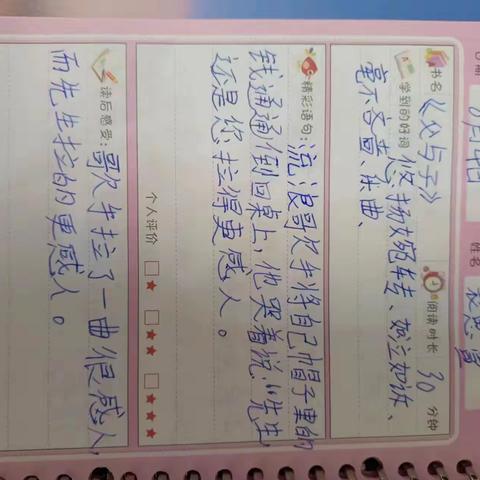 日期
姓名
书名 《父与子》
阅读时长 30 分钟
学到的好词 悠扬婉转、如泣如诉、
毫不吝啬、乐曲、
精彩语句：流浪歌手将自己帽子里的
钱通通倒回桌上，他哭着说：“先生，
还是您拉得更感人。
个人评价
读后感受：歌手拉了一曲很感人，
而先生拉的更感人。